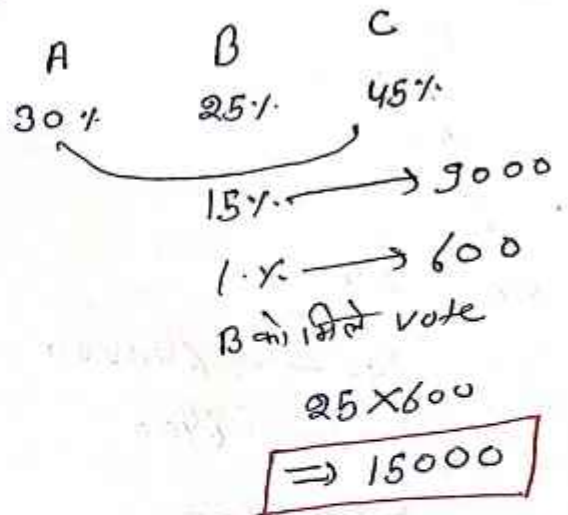 A B C
30% 25% 45%
15% → 9000
1% → 600
B को मिले vote
25×600
⇒ 15000